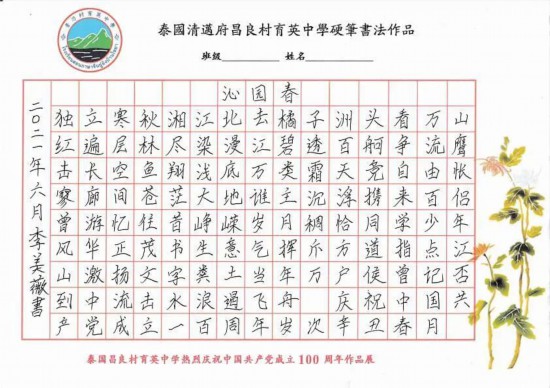 泰國清邁府昌良村育英中學硬筆書法作品
班級 姓名
沁园春
独立寒秋湘江北去橘子洲头看万山
红遍层林尽染漫江碧透百舸争流鹰
击长空鱼翔浅底万类霜天竞自由怅
寥廓间苍茫大地谁主沉浮携来百侣
曾游忆往昔峥嵘岁月稠恰同学少年
风华正茂书生意气挥斥方遒指点江
山激扬文字粪土当年万户侯曾记否
到中流击水浪遏飞舟 庆祝中国共
产党成立一百周年岁次辛丑春月
二〇二一年六月李美薇書
泰国昌良村育英中学热烈庆祝中国共产党成立100周年作品展